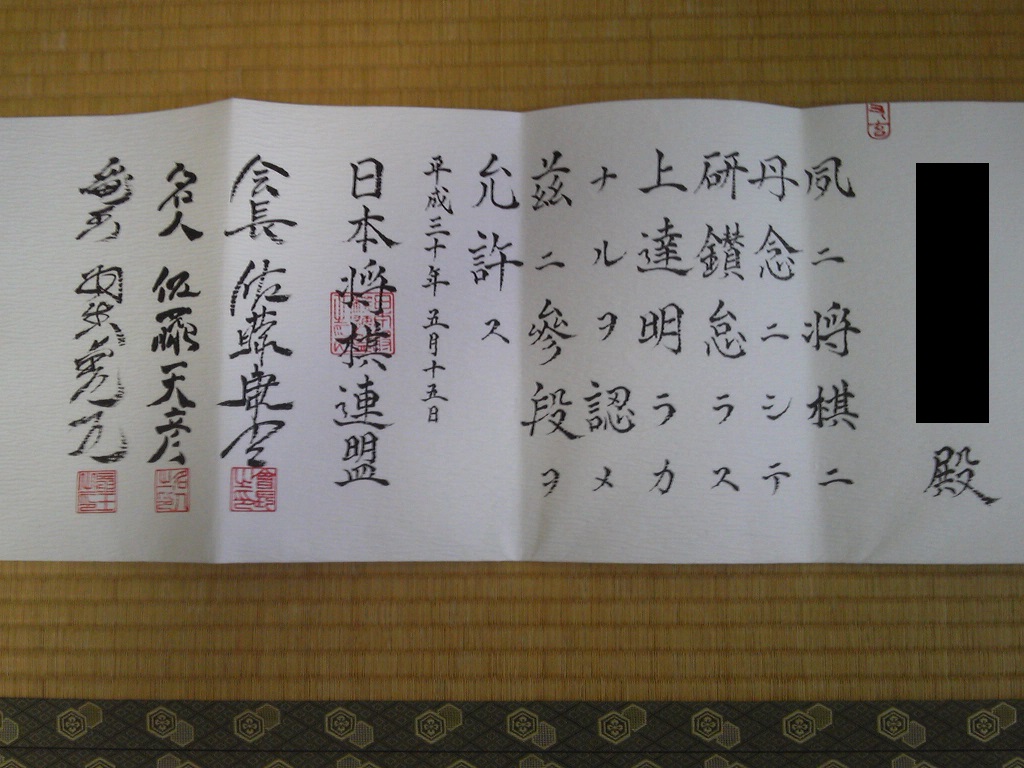 殿
夙ニ将棋ニ
丹念ニシテ
研鑚怠ラス
上達明ラカ
ナルヲ認メ
茲ニ參段ヲ
允許ス
平成三十年五月十五日
日本将棋連盟
会長 佐藤康光
名人 佐藤天彦